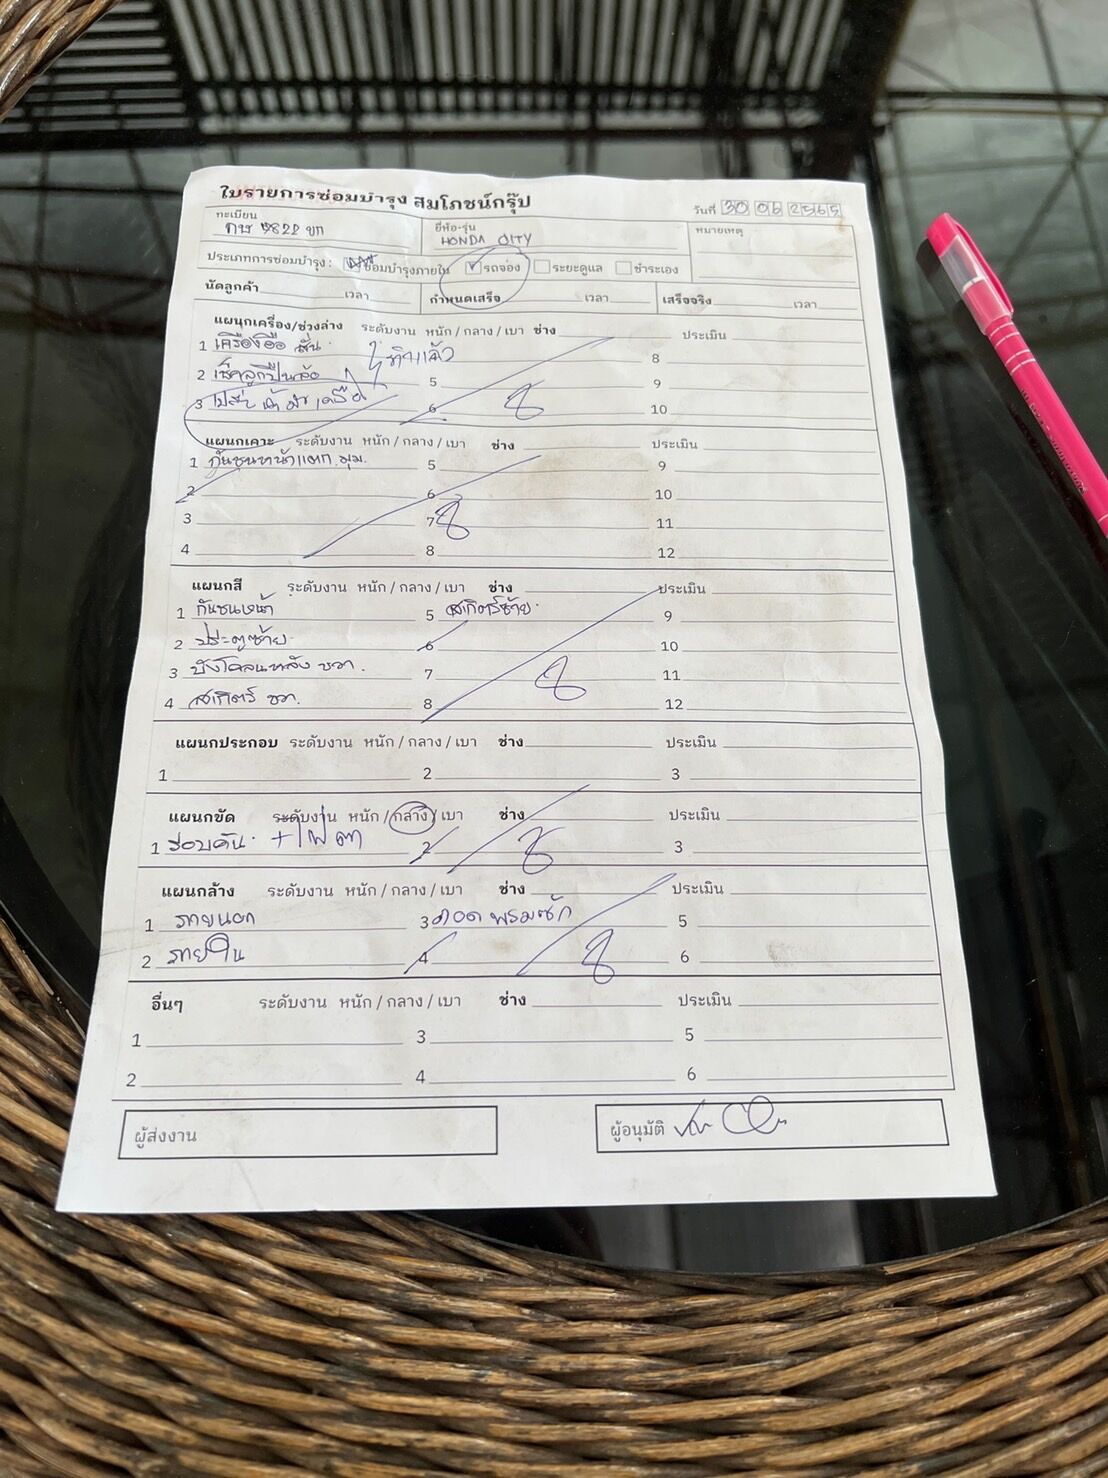 ใบรายการซ่อมบำรุง สมโภชน์กรุ๊ป
วันที่ 30 06 2565
ทะเบียน ยี่ห้อ-รุ่น หมายเหตุ
9822 ขก HONDA CITY
ประเภทการซ่อมบำรุง : ซ่อมบำรุงภายใน ✓ รถจ่อง ระยะดูแล ชำระเอง
นัดลูกค้า เวลา กำหนดเสร็จ เวลา เสร็จจริง เวลา
แผนุกเครื่อง/ช่วงล่าง ระดับงาน หนัก / กลาง / เบา ช่าง ประเมิน
1 เครื่องอืด สั่น 8
2 เช็คลูกปืนล้อ 5 9
3 6 10
แผนกเคาะ ระดับงาน หนัก / กลาง / เบา ช่าง ประเมิน
1 กันชนหน้าแตก มุม. 5 9
2 6 10
3 7 11
4 8 12
แผนกสี ระดับงาน หนัก / กลาง / เบา ช่าง ประเมิน
1 กันชนหน้า 5 สเกิตร์ซ้าย. 9
2 ประตูซ้าย. 6 10
3 บังโคลนหลัง ขวา. 7 11
4 สเกิตร์ ขวา. 8 12
แผนกประกอบ ระดับงาน หนัก / กลาง / เบา ช่าง ประเมิน
1 2 3
แผนกขัด ระดับงาน หนัก / กลาง / เบา ช่าง ประเมิน
1 รอบคัน. + ไฟตา 2 3
แผนกล้าง ระดับงาน หนัก / กลาง / เบา ช่าง ประเมิน
1 ภายนอก 3 ถอดพรมซัก 5
2 ภายใน 4 6
อื่นๆ ระดับงาน หนัก / กลาง / เบา ช่าง ประเมิน
1 3 5
2 4 6
ผู้ส่งงาน ผู้อนุมัติ